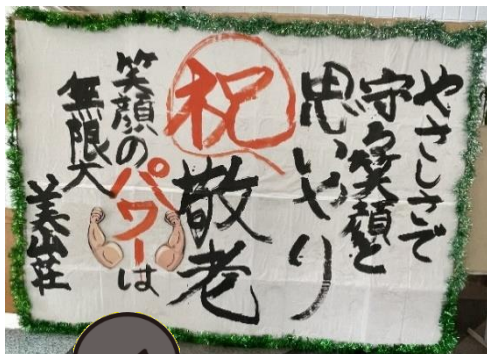 やさしさで
守る笑顔と
思いやり
祝敬老
笑顔のパワーは
無限大
美山荘